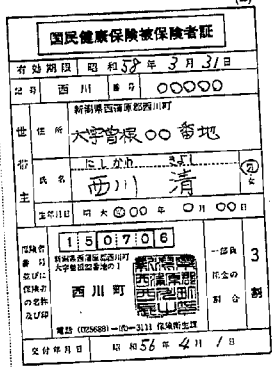 国民健康保険被保険者証
有効期限 昭和58年3月31日
記号 西川 番号 ○○○○○
世帯主
住所 新潟県西蒲原郡西川町
大字曽根○○番地
にしかわ きよし
氏名 西川 清 男 女
生年月日 明 大 昭 ○○年○月○○日
保険者番号並びに保険者の名称及び印
150706
新潟県西蒲原郡西川町
大字曽根
西川町
電話(025688)
3111 保険衛生課
一部負担金の割合
3割
交付年月日 昭和56年4月1日